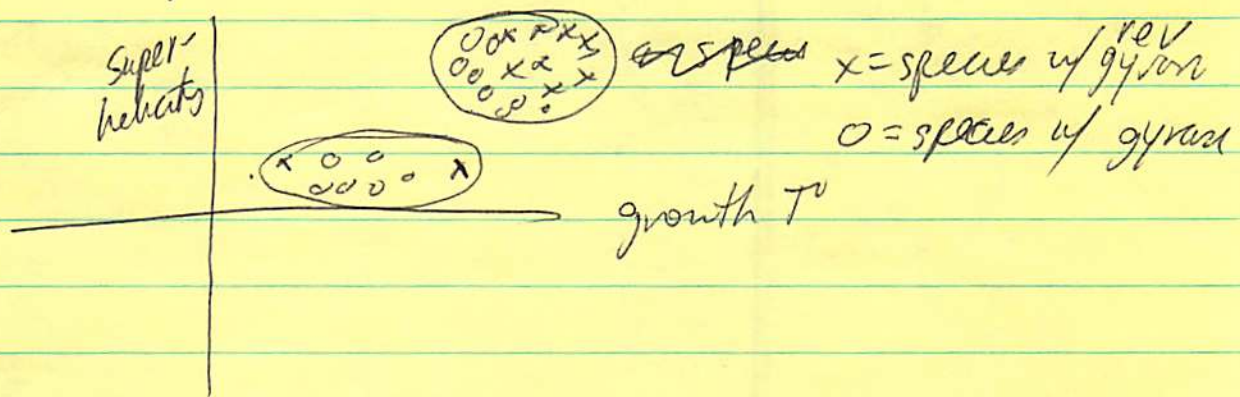 Super-
helicity
rev
x = species w/ gyrase
o = species w/ gyrase
growth T°